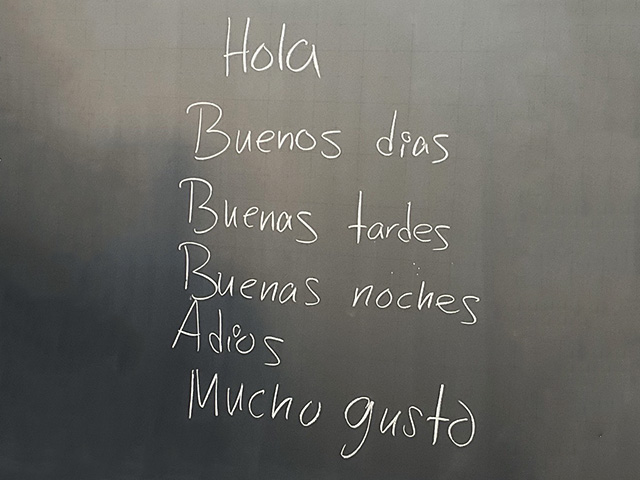 Hola
Buenos dias
Buenas tardes
Buenas noches
Adios
Mucho gusto